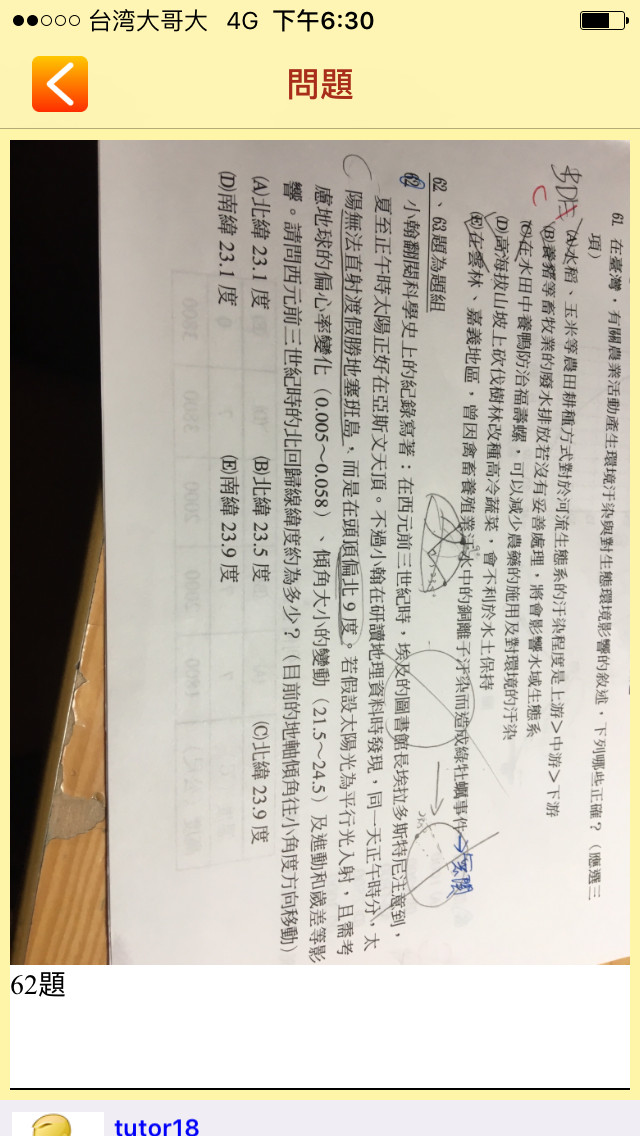 台湾大哥大 4G 下午6:30
問題
61. 在臺灣，有關農業活動產生環境汙染與對生態環境影響的敘述，下列哪些正確？（應選三
項）
(A)水稻、玉米等農田耕種方式對於河流生態系的汙染程度是上游>中游>下游
(B)養豬等畜牧業的廢水排放若沒有妥善處理，將會影響水域生態系
(C)在水田中養鴨防治福壽螺，可以減少農藥的施用及對環境的汙染
(D)高海拔山坡上砍伐樹林改種高冷蔬菜，會不利於水土保持
(E)在雲林、嘉義地區，曾因禽畜養殖業汙水中的銅離子汙染而造成綠牡蠣事件
62、63題為題組
62. 小翰翻閱科學史上的紀錄寫著：在西元前三世紀時，埃及的圖書館長埃拉多斯特尼注意到，
夏至正午時太陽正好在亞斯文天頂。不過小翰在研讀地理資料時發現，同一天正午時分，太
陽無法直射渡假勝地塞班島，而是在頭頂偏北 9 度。若假設太陽光為平行光入射，且需考
慮地球的偏心率變化（0.005～0.058）、傾角大小的變動（21.5～24.5）及進動和歲差等影
響。請問西元前三世紀時的北回歸線緯度約為多少？（目前的地軸傾角往小角度方向移動）
(A)北緯 23.1 度 (B)北緯 23.5 度 (C)北緯 23.9 度
(D)南緯 23.1 度 (E)南緯 23.9 度
C
62題
tutor18